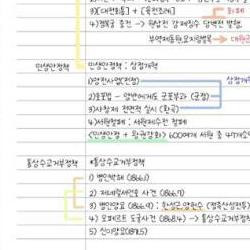 3) [대전회통] + [육전조례] 편찬
4) 경복궁 중건 → 원납전 강제징수 당백전 발행
부역제동원, 묘지림벌목
민생안정책
민생안정책 : 삼정개혁
1) 양전사업 (전정)
2) 호포법 - 양반에게도 군포부과 (군정)
3) 사창제 전면적 실시 (환곡)
4) 서원철폐 : 서원제수전 철폐
<민생안정 + 왕권강화> 600여개 서원 중 47개소
통상수교거부정책
*통상수교거부정책
1) 병인박해 (1866.1)
2) 제너럴셔먼호 사건 (1866.7)
3) 병인양요 (1866.9) :
4) 오페르트 도굴사건 (1868.4) → 통상수교거부정책
5) 신미양요 (1871.5)